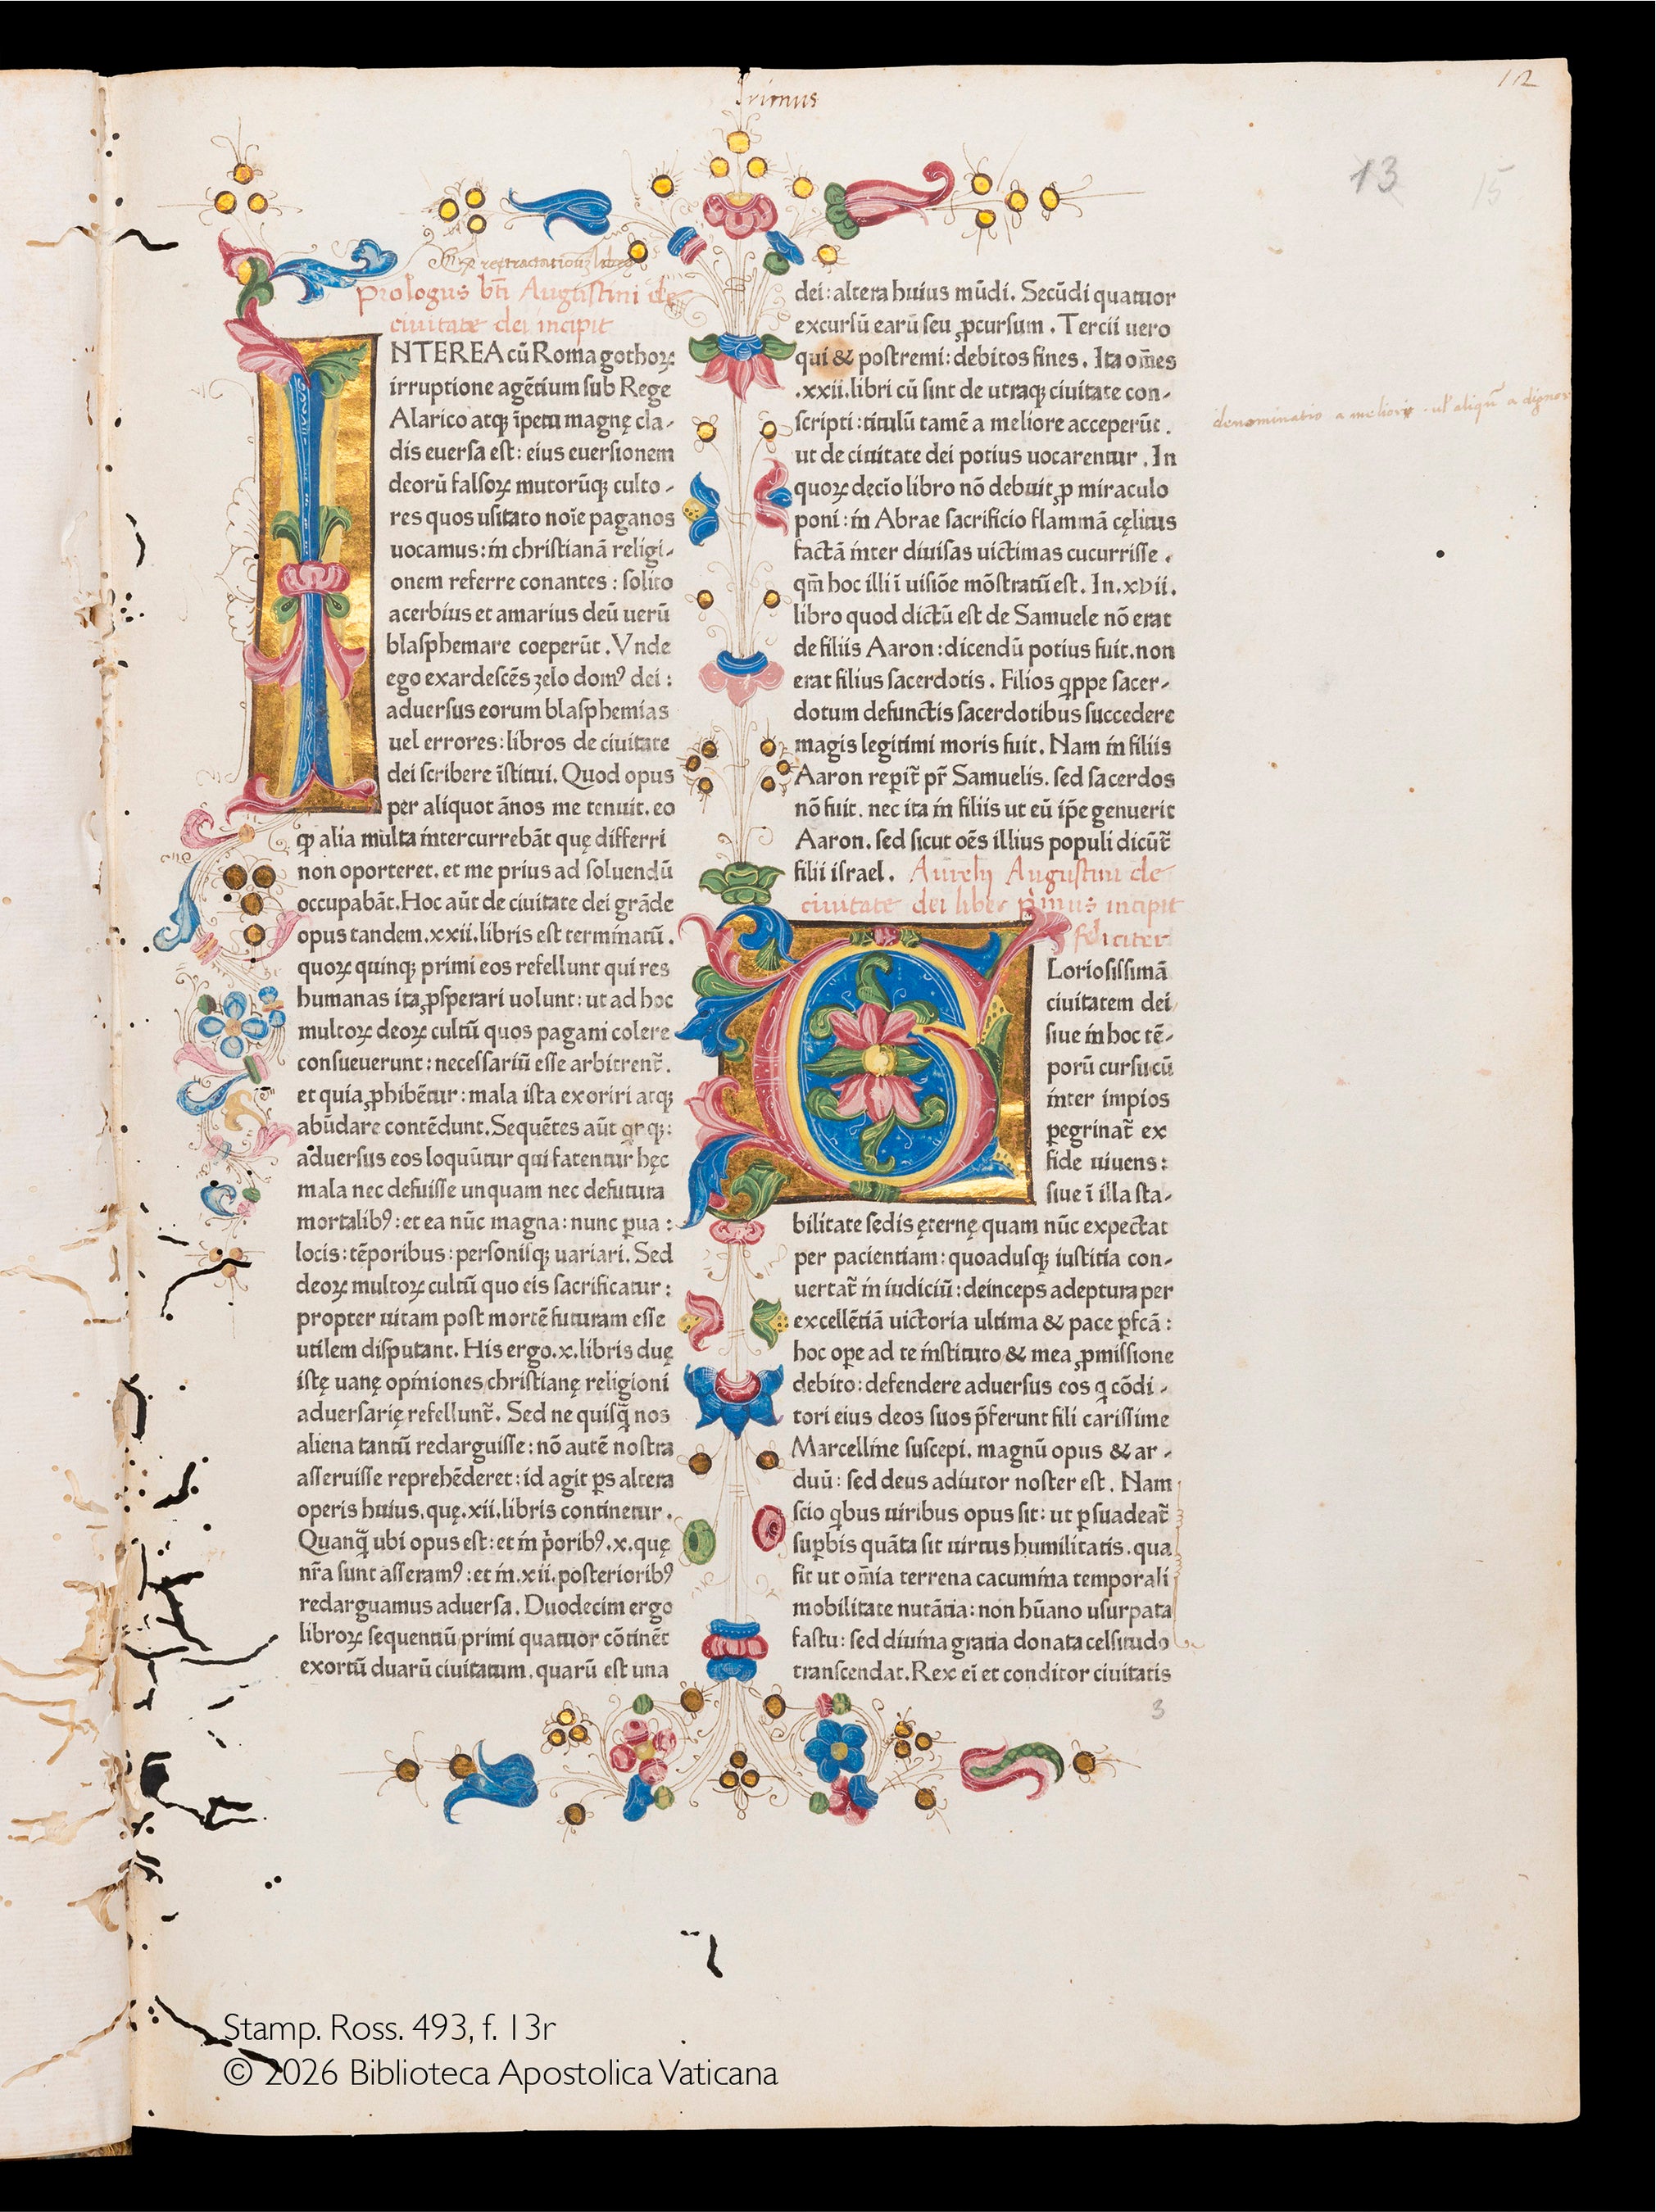 Primus
12
13
15
Ex retractationū libro
Prologus bti Augustini de
ciuitate dei incipit
INTEREA cū Roma gothoꝝ
irruptione agētium sub Rege
Alarico atqꝫ īpetu magnę cla-
dis euersa est: eius euersionem
deorū falsoꝝ mutorūqꝫ culto-
res quos usitato noīe paganos
uocamus: in christianā religi-
onem referre conantes: solito
acerbius et amarius deū uerū
blasphemare coeperūt. Vnde
ego exardescēs zelo domꝰ dei:
aduersus eorum blasphemias
uel errores: libros de ciuitate
dei scribere īstitui. Quod opus
per aliquot ānos me tenuit. eo
ꝙ alia multa intercurrebāt quę differri
non oporteret. et me prius ad soluendū
occupabāt. Hoc aūt de ciuitate dei grāde
opus tandem .xxii. libris est terminatū.
quoꝝ quinqꝫ primi eos refellunt qui res
humanas ita ꝓsperari uolunt: ut ad hoc
multoꝝ deoꝝ cultū quos pagani colere
consueuerunt: necessariū esse arbitrent̃.
et quia ꝓhibētur: mala ista exoriri atqꝫ
abūdare contēdunt. Sequētes aūt qrqꝫ:
aduersus eos loquūtur qui fatentur hęc
mala nec defuisse unquam nec defutura
mortalibꝰ: et ea nūc magna: nunc ꝑua:
locis: tēporibus: personisqꝫ uariari. Sed
deoꝝ multoꝝ cultū quo eis sacrificatur:
propter uitam post mortē futuram esse
utilem disputant. His ergo .x. libris duę
istę uanę opiniones christianę religioni
aduersarię refellunt̃. Sed ne quisq̄ nos
aliena tantū redarguisse: nō autē nostra
asseruisse reprehēderet: id agit ps altera
operis huius. quę .xii. libris continetur.
Quanq̄ ubi opus est: et in p̄oribꝰ .x. quę
nr̄a sunt asseramꝰ: et in .xii. posterioribꝰ
redarguamus aduersa. Duodecim ergo
libroꝝ sequentiū primi quatuor cōtinēt
exortū duarū ciuitatum. quarū est una
dei: altera huius mūdi. Secūdi quatuor
excursū earū seu ꝓcursum. Tercii uero
qui & postremi: debitos fines. Ita om̄es
.xxii. libri cū sint de utraqꝫ ciuitate con-
scripti: titulū tamē a meliore acceperūt.
ut de ciuitate dei potius uocarentur. In
quoꝝ decīo libro nō debuit ꝓ miraculo
poni: in Abrae sacrificio flammā cęlitus
factā inter diuisas uictimas cucurrisse.
qm̄ hoc illi ī uisiōe mōstratū est. In .xvii.
libro quod dictū est de Samuele nō erat
de filiis Aaron: dicendū potius fuit. non
erat filius sacerdotis. Filios qppe sacer-
dotum defunctis sacerdotibus succedere
magis legitimi moris fuit. Nam in filiis
Aaron reꝑit̃ pr̄ Samuelis. sed sacerdos
nō fuit. nec ita in filiis ut eū ip̄e genuerit
Aaron. sed sicut oēs illius populi dicūt̃
filii israel. Aurelij Augustini de
ciuitate dei liber primus incipit
feliciter
GLoriosissimā
ciuitatem dei
siue in hoc tē-
porū cursu cū
inter impios
ꝑegrinat̃ ex
fide uiuens:
siue ī illa sta-
bilitate sedis ęternę quam nūc expectat
per pacientiam: quoadusqꝫ iustitia con-
uertat̃ in iudiciū: deinceps adeptura per
excellētiā uictoria ultima & pace ꝑfcā:
hoc oꝑe ad te instituto & mea ꝓmissione
debito: defendere aduersus eos q cōdi-
tori eius deos suos p̄ferunt fili carissime
Marcelline suscepi. magnū opus & ar-
duū: sed deus adiutor noster est. Nam
scio qbus uiribus opus sit: ut ꝑsuadeat̃
suꝑbis quāta sit uirtus humilitatis. qua
fit ut om̄ia terrena cacumina temporali
mobilitate nutātia: non hūano usurpata
fastu: sed diuina gratia donata celsitudo
transcendat. Rex ei et conditor ciuitatis
3
denominatio a meliori uł aliqū a dignori
Stamp. Ross. 493, f. 13r
© 2026 Biblioteca Apostolica Vaticana